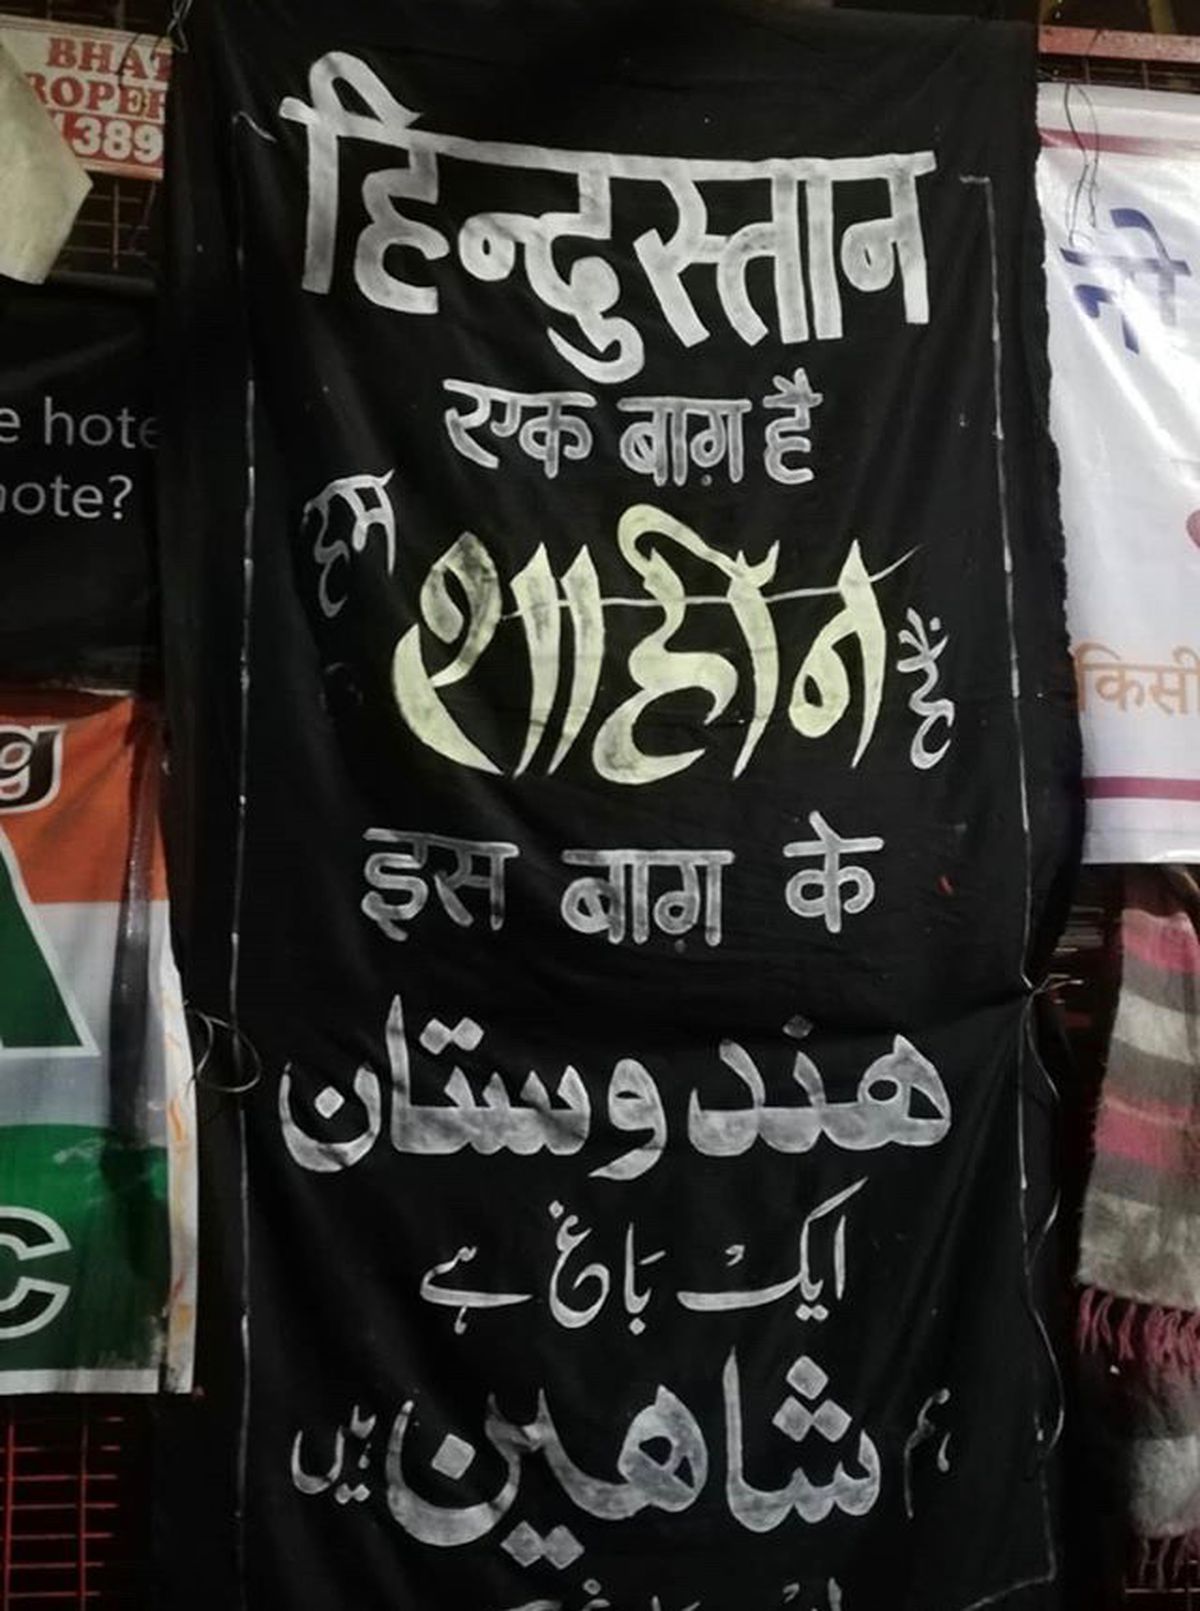 BHAT
ROPER
1389
e hote
note?
g
A
C
हिन्दुस्तान
एक बाग़ है
हम शाहीन हैं
इस बाग़ के
ھندوستان
ایک باغ ہے
ہم شاھین ہیں
किसी